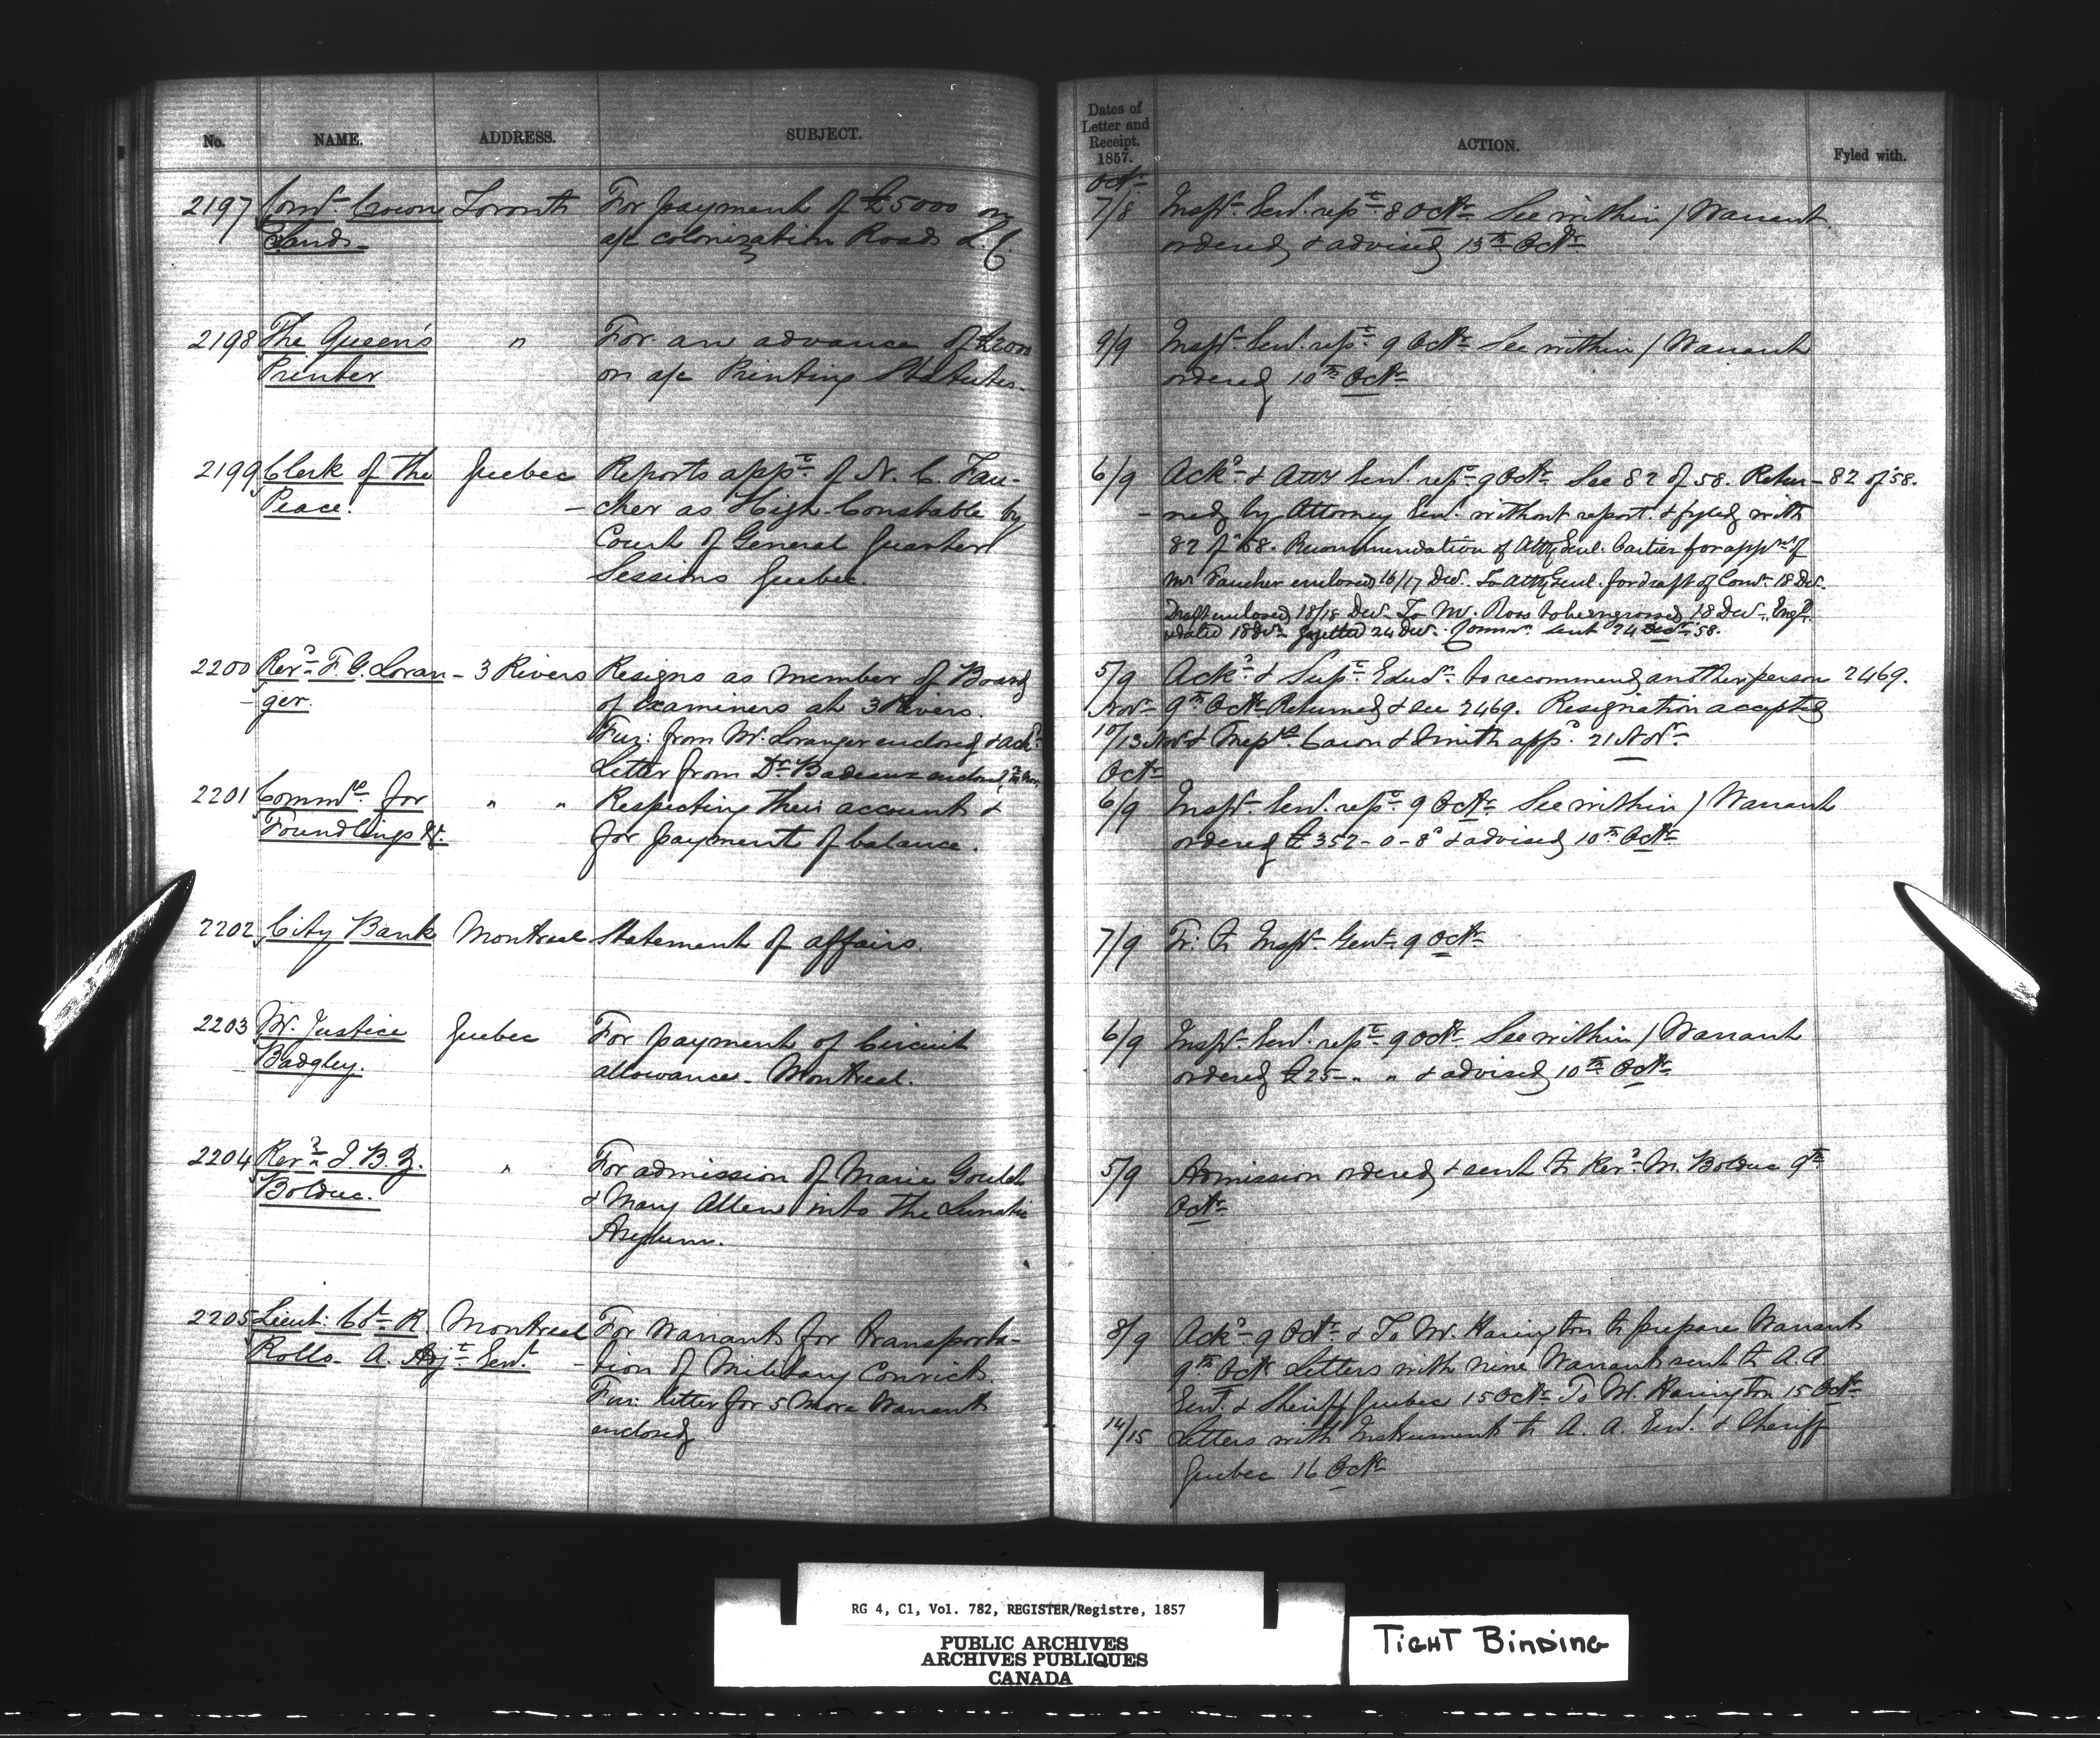 No. NAME. ADDRESS. SUBJECT.
Dates of Letter and Receipt. 1857. ACTION. Fyled with.
Octr
2197 Comr Crown Toronto For payment of £5000 on 7/8 Inspr Genl. rept. 8 Octr See within / Warrant
Lands a/c colonization Roads L.C. ordered & advised 13th Octr
2198 The Queen's " For an advance of £2000 9/9 Inspr Genl. rept. 9 Octr See within / Warrant
Printer on a/c Printing Statutes. ordered 10th Octr
2199 Clerk of the Quebec Reports appt. of N. C. Fau- 6/9 Ackd & Atty Genl. rept 9 Octr See 82 of 58. Retur- 82 of 58.
Peace. cher as High Constable by ned by Attorney Genl. without report. & fyled with
Court of General Quarter 82 of 58. Recommendation of Atty Genl. Cartier for appmt of
Sessions Quebec. Mr Faucher enclosed 16/17 Decr. To Atty Genl. for draft of Comn 18 Decr.
Draft enclosed 18/18 Decr. To Mr. Ross to be engrossed 18 Decr. Engd.
dated 18 Decr. gazetted 24 Decr. Comn. sent 24 Decr 58.
2200 Revd F. G. Loran- 3 Rivers Resigns as member of Board 5/9 Ackd & Supt Educn. to recommend another person 2469.
ger. of Examiners at 3 Rivers. Novr 9th Octr Returned & see 2469. Resignation accepted
Fur: from Mr. Loranger enclosed & Ackd. 10/13 Novr & Messrs. Caron & Smith appd. 21 Novr.
Letter from Dr Badeaux enclosed Novr Octr
2201 Commrs. for " " Respecting their accounts & 6/9 Inspr Genl. rept. 9 Octr. See within / Warrant
Foundlings &c. for payment of balance. ordered £352-0-8 & advised 10th Octr
2202 City Bank Montreal Statement of affairs. 7/9 Tr: to Inspr Genl 9 Octr
2203 Mr. Justice Quebec For payment of Circuit 6/9 Inspr Genl. rept. 9 Octr See within / Warrant
Badgley. allowance - Montreal. ordered £25- " " & advised 10th Octr
2204 Revd J. B. Z. " For admission of Marie Gould 5/9 Admission ordered & sent to Revd. M. Bolduc 9th
Bolduc. & Mary Allen into the Lunatic Octr
Asylum.
2205 Lieut: Col. R. Montreal For Warrants for transporta- 8/9 Ackd 9 Octr & To Mr. Harington to prepare Warrants
Rollo - A. Adjt Genl. tion of Military Convicts. 9th Octr Letters with nine Warrants sent to A. A.
Fur: letter for 5 more Warrants Genl. & Sheriff Quebec 15 Octr To Mr. Harington 15 Octr
enclosed 14/15 Letters with Instrument to A. A. Genl. & Sheriff
Quebec 16 Octr
RG 4, C1, Vol. 782, REGISTER/Registre, 1857
PUBLIC ARCHIVES
ARCHIVES PUBLIQUES
CANADA
TIGHT BINDING